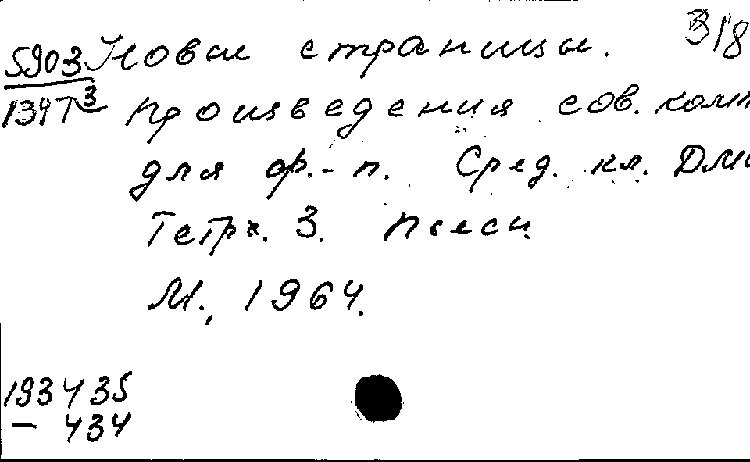 5903 Новые страницы. 318
1397 3 произведения сов. комп
для ф.-п. Сред. кл. ДМ
Тетр. 3. Пьесы
М., 1964.
193435
- 434